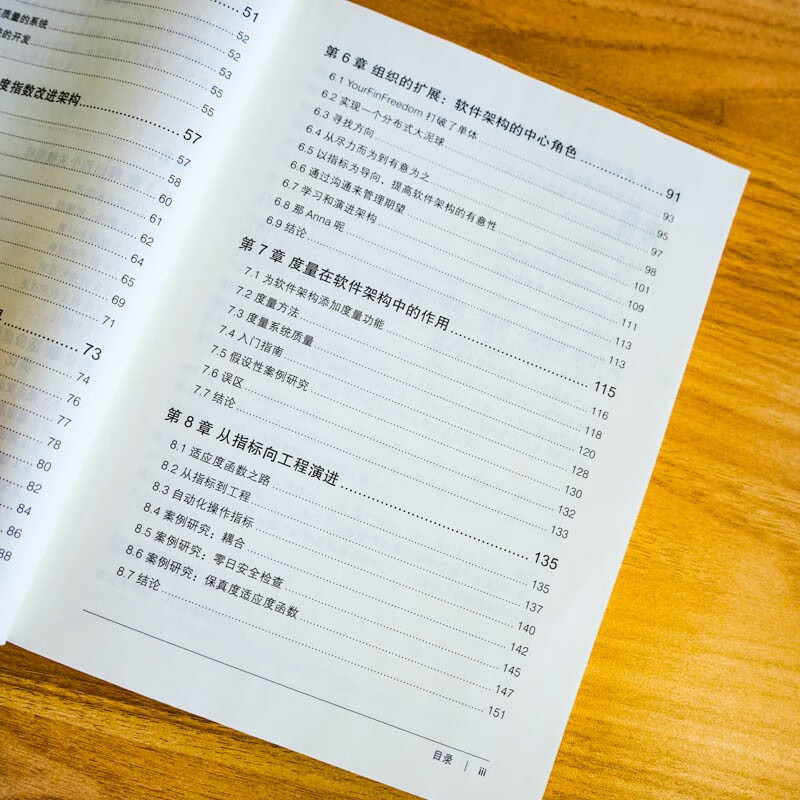 51
质量的系统 52
的开发 52
53
55
55
度指数改进架构 57
57
58
60
61
62
64
65
69
71
73
74
76
77
78
80
82
84
86
88
第 6 章 组织的扩展：软件架构的中心角色 91
6.1 YourFinFreedom 打破了单体 93
6.2 实现一个分布式大泥球 95
6.3 寻找方向 97
6.4 从尽力而为到有意为之 98
6.5 以指标为导向，提高软件架构的有意性 101
6.6 通过沟通来管理期望 109
6.7 学习和演进架构 111
6.8 那 Anna 呢 113
6.9 结论 113
第 7 章 度量在软件架构中的作用 115
7.1 为软件架构添加度量功能 116
7.2 度量方法 118
7.3 度量系统质量 120
7.4 入门指南 128
7.5 假设性案例研究 130
7.6 误区 132
7.7 结论 133
第 8 章 从指标向工程演进 135
8.1 适应度函数之路 135
8.2 从指标到工程 137
8.3 自动化操作指标 140
8.4 案例研究：耦合 142
8.5 案例研究：零日安全检查 145
8.6 案例研究：保真度适应度函数 147
8.7 结论 151
目录 | iii